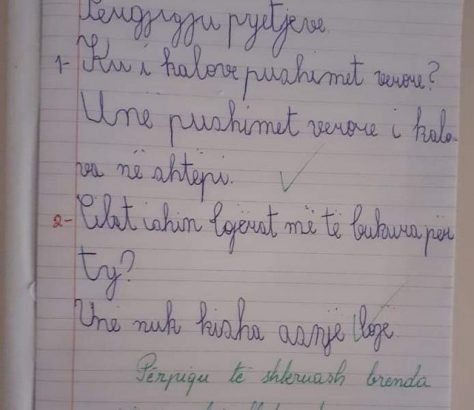 Përgjigju pyetjeve.
1- Ku i kalove pushimet verore?
Une pushimet verore i kalo-
va në shtëpi.
2- Cilat ishin lojërat më të bukura për
ty?
Unë nuk kisha asnjë lojë.
Përpiqu të shkruash brenda